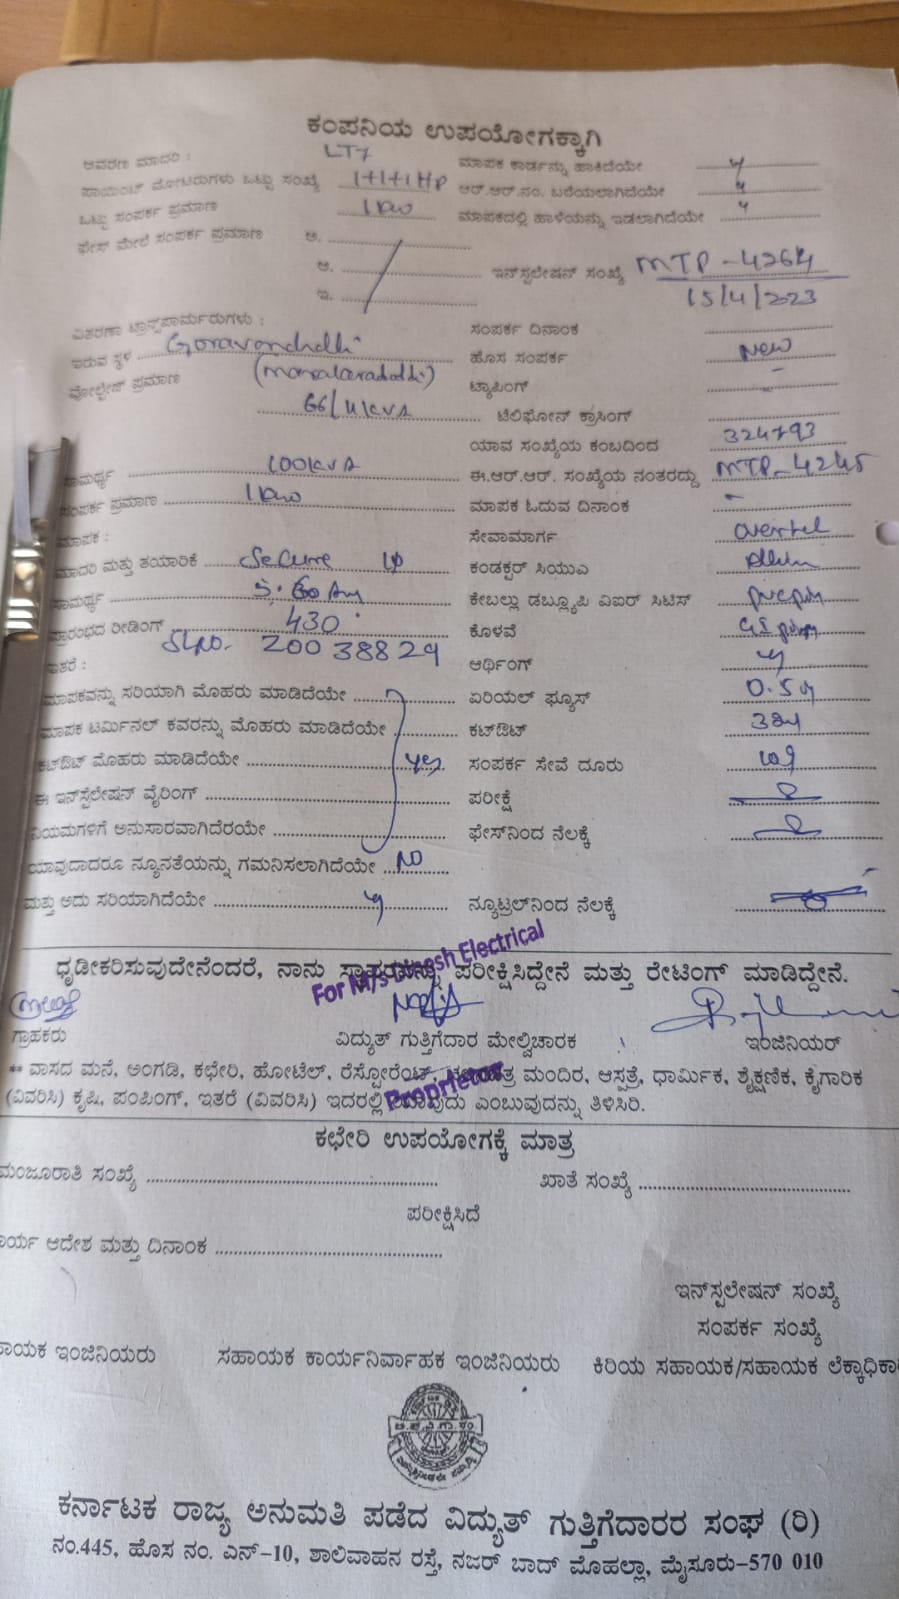 ಕಂಪನಿಯ ಉಪಯೋಗಕ್ಕಾಗಿ
ಆವರಣ ಮಾದರಿ : LT7 ಮಾಪಕ ಕಾರ್ಡನ್ನು ಹಾಕಿದೆಯೇ y
ಪಾಯಿಂಟ್ ಮೋಟರುಗಳು ಒಟ್ಟು ಸಂಖ್ಯೆ 1+1+1HP ಆರ್.ಆರ್.ನಂ. ಬರೆಯಲಾಗಿದೆಯೇ y
ಒಟ್ಟು ಸಂಪರ್ಕ ಪ್ರಮಾಣ 1kw ಮಾಪಕದಲ್ಲಿ ಹಾಳೆಯನ್ನು ಇಡಲಾಗಿದೆಯೇ y
ಫೇಸ್ ಮೇಲೆ ಸಂಪರ್ಕ ಪ್ರಮಾಣ ಅ.
ಆ. ಇನ್‌ಸ್ಪಲೇಷನ್ ಸಂಖ್ಯೆ MTP-4264
ಇ. 15/4/2023
ವಿತರಣಾ ಟ್ರಾನ್ಸ್‌ಫಾರ್ಮರುಗಳು : ಸಂಪರ್ಕ ದಿನಾಂಕ
ಇರುವ ಸ್ಥಳ ಹೊಸ ಸಂಪರ್ಕ New
ವೋಲ್ಟೇಜ್ ಪ್ರಮಾಣ ಟ್ಯಾಪಿಂಗ್ -
66/11kVA ಟೆಲಿಫೋನ್ ಕ್ರಾಸಿಂಗ್
ಯಾವ ಸಂಖ್ಯೆಯ ಕಂಬದಿಂದ 324793
ಸಾಮರ್ಥ್ಯ 100kVA ಈ.ಆರ್.ಆರ್. ಸಂಖ್ಯೆಯ ನಂತರದ್ದು MTP-4245
ಸಂಪರ್ಕ ಪ್ರಮಾಣ 1kw ಮಾಪಕ ಓದುವ ದಿನಾಂಕ -
ಮಾಪಕ : ಸೇವಾಮಾರ್ಗ
ಮಾದರಿ ಮತ್ತು ತಯಾರಿಕೆ Secure ಕಂಡಕ್ಟರ್ ಸಿಯುಎ
ಸಾಮರ್ಥ್ಯ ಕೇಬಲ್ಲು ಡಬ್ಲ್ಯೂಪಿ ವಿಐರ್ ಸಿಟಿಸ್
ಪ್ರಾರಂಭದ ರೀಡಿಂಗ್ 430 ಕೊಳವೆ
Slno. 20038829
ಇತರೆ : ಆರ್ಥಿಂಗ್ y
ಮಾಪಕವನ್ನು ಸರಿಯಾಗಿ ಮೊಹರು ಮಾಡಿದೆಯೇ ಏರಿಯಲ್ ಫ್ಯೂಸ್
ಮಾಪಕ ಟರ್ಮಿನಲ್ ಕವರನ್ನು ಮೊಹರು ಮಾಡಿದೆಯೇ ಕಟ್‌ಔಟ್
ಕಟ್‌ಔಟ್ ಮೊಹರು ಮಾಡಿದೆಯೇ yes ಸಂಪರ್ಕ ಸೇವೆ ದೂರು
ಈ ಇನ್‌ಸ್ಪಲೇಷನ್ ವೈರಿಂಗ್ ಪರೀಕ್ಷೆ
ನಿಯಮಗಳಿಗೆ ಅನುಸಾರವಾಗಿದೆರಯೇ ಫೇಸ್‌ನಿಂದ ನೆಲಕ್ಕೆ
ಯಾವುದಾದರೂ ನ್ಯೂನತೆಯನ್ನು ಗಮನಿಸಲಾಗಿದೆಯೇ NO
ಮತ್ತು ಅದು ಸರಿಯಾಗಿದೆಯೇ y ನ್ಯೂಟ್ರಲ್‌ನಿಂದ ನೆಲಕ್ಕೆ
ಧೃಡೀಕರಿಸುವುದೇನೆಂದರೆ, ನಾನು ಪರೀಕ್ಷಿಸಿದ್ದೇನೆ ಮತ್ತು ರೇಟಿಂಗ್ ಮಾಡಿದ್ದೇನೆ.
For M/s Dinesh Electrical
ಗ್ರಾಹಕರು ವಿದ್ಯುತ್ ಗುತ್ತಿಗೆದಾರ ಮೇಲ್ವಿಚಾರಕ ಇಂಜಿನಿಯರ್
** ವಾಸದ ಮನೆ, ಅಂಗಡಿ, ಕಛೇರಿ, ಹೋಟೆಲ್, ರೆಸ್ಟೋರೆಂಟ್, ಮಂದಿರ, ಆಸ್ಪತ್ರೆ, ಧಾರ್ಮಿಕ, ಶೈಕ್ಷಣಿಕ, ಕೈಗಾರಿಕ
Proprietor
(ವಿವರಿಸಿ) ಕೃಷಿ, ಪಂಪಿಂಗ್, ಇತರೆ (ವಿವರಿಸಿ) ಇದರಲ್ಲಿ ಯಾವುದು ಎಂಬುವುದನ್ನು ತಿಳಿಸಿರಿ.
ಕಛೇರಿ ಉಪಯೋಗಕ್ಕೆ ಮಾತ್ರ
ಮಂಜೂರಾತಿ ಸಂಖ್ಯೆ ಖಾತೆ ಸಂಖ್ಯೆ
ಪರೀಕ್ಷಿಸಿದೆ
ಾರ್ಯ ಆದೇಶ ಮತ್ತು ದಿನಾಂಕ
ಇನ್‌ಸ್ಪಲೇಷನ್ ಸಂಖ್ಯೆ
ಸಂಪರ್ಕ ಸಂಖ್ಯೆ
ಾಯಕ ಇಂಜಿನಿಯರು ಸಹಾಯಕ ಕಾರ್ಯನಿರ್ವಾಹಕ ಇಂಜಿನಿಯರು ಕಿರಿಯ ಸಹಾಯಕ/ಸಹಾಯಕ ಲೆಕ್ಕಾಧಿಕಾ
ಕರ್ನಾಟಕ ರಾಜ್ಯ ಅನುಮತಿ ಪಡೆದ ವಿದ್ಯುತ್ ಗುತ್ತಿಗೆದಾರರ ಸಂಘ (ರಿ)
ನಂ.445, ಹೊಸ ನಂ. ಎನ್-10, ಶಾಲಿವಾಹನ ರಸ್ತೆ, ನಜರ್ ಬಾದ್ ಮೊಹಲ್ಲಾ, ಮೈಸೂರು-570 010